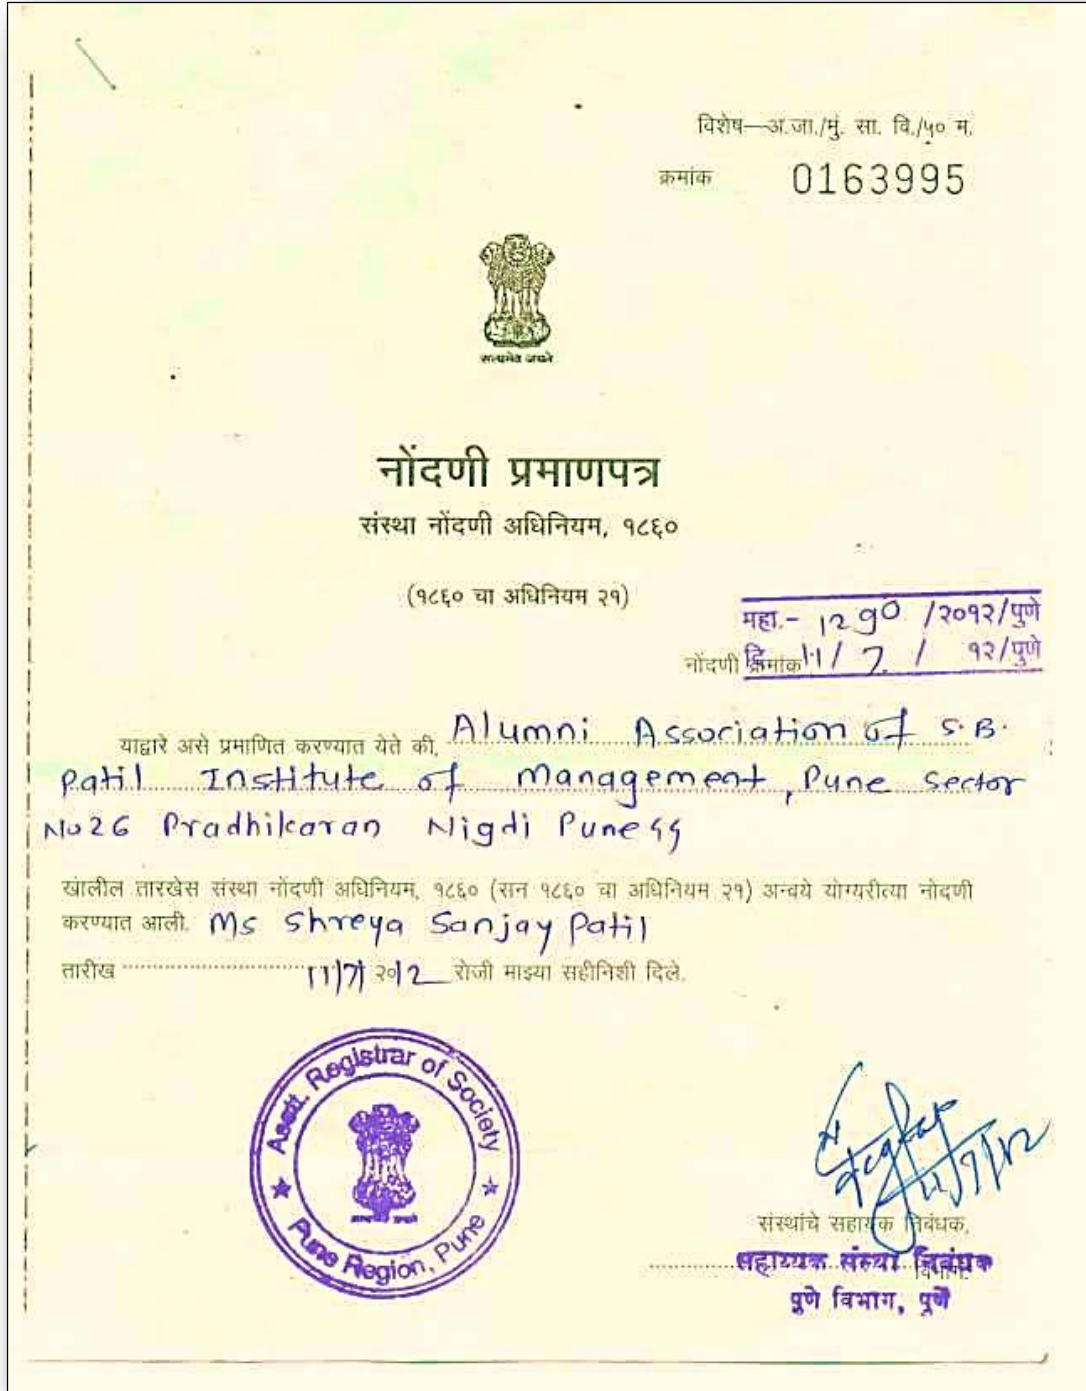 विशेष—अ.जा./मुं. सा. वि./५० म.
क्रमांक 0163995
सत्यमेव जयते
नोंदणी प्रमाणपत्र
संस्था नोंदणी अधिनियम, १८६०
(१८६० चा अधिनियम २१)
महा.- 1290 /२०१२/पुणे
नोंदणी क्रमांक दि. 11/7 / १२/पुणे
याद्वारे असे प्रमाणित करण्यात येते की, Alumni Association of S.B.
Patil Institute of Management, Pune Sector
No 26 Pradhikaran Nigdi Pune 44
खालील तारखेस संस्था नोंदणी अधिनियम, १८६० (सन १८६० चा अधिनियम २१) अन्वये योग्यरीत्या नोंदणी
करण्यात आली. Ms Shreya Sanjay Patil
तारीख 11/7/ २०12 रोजी माझ्या सहीनिशी दिले.
Asstt. Registrar of Society
Pune Region, Pune
11/7/12
संस्थांचे सहायक निबंधक,
सहाय्यक संस्था निबंधक
विभाग.
पुणे विभाग, पुणे